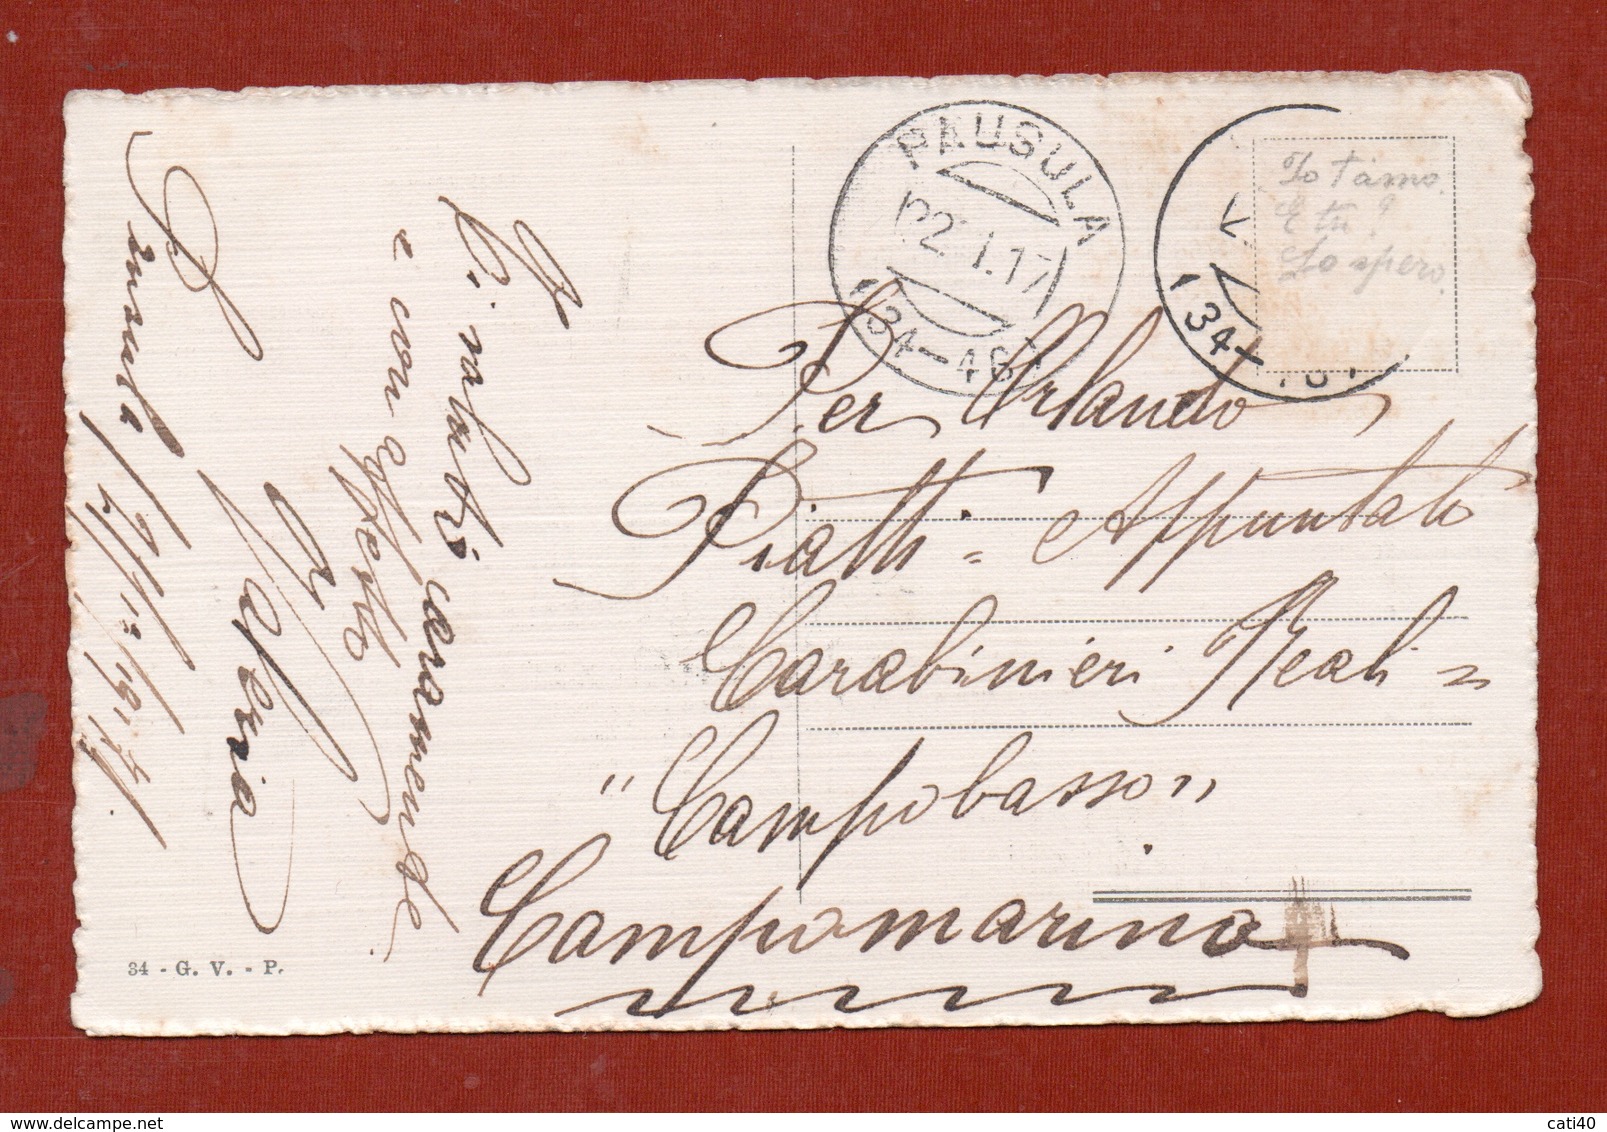 Ti saluto caramente
e con affetto
Valeria
Pausula, 1917
PAUSULA
22.1.17
(34-46)
V.
(34-
Io t'amo.
E tu?
Lo spero.
Per Orlando
Piatti = Appuntato
Carabinieri Reali =
"Campobasso"
Campomarino
34 - G. V. - P.
delcampe.net
cati40